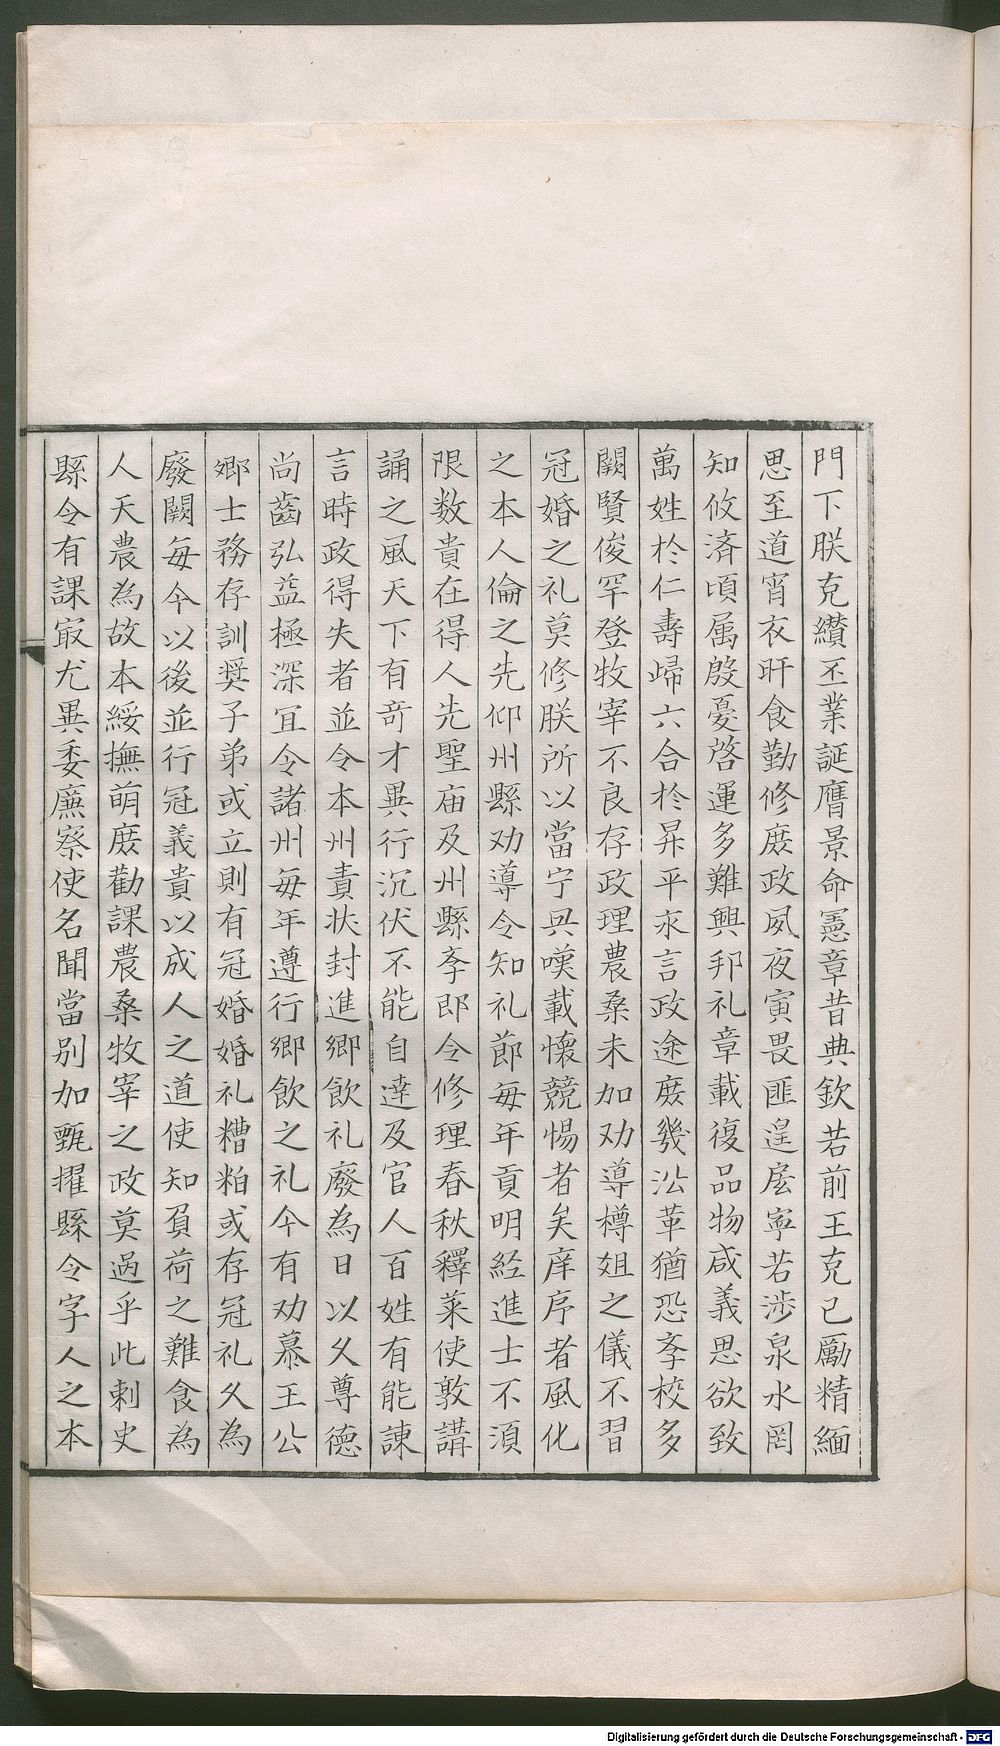 門下朕克纘丕業誕膺景命憲章昔典欽若前王克己勵精緬
思至道宵衣旰食勤修庶政夙夜寅畏匪遑㡯寧若涉泉水罔
知攸済頃属殷憂啓運多難興邦礼章載復品物咸義思欲致
萬姓於仁壽歸六合於昇平求言政途庶幾㳂革猶恐斈校多
闕賢俊罕登牧宰不良存政理農桑未加劝導樽俎之儀不習
冠婚之礼莫修朕所以當宁興嘆載懷競惕者矣庠序者風化
之本人倫之先仰州縣劝導令知礼節每年貢明経進士不須
限数貴在得人先聖庙及州縣斈即令修理春秋釋菜使敦講
誦之風天下有竒才異行沉伏不能自達及官人百姓有能諫
言時政得失者並令本州責状封進鄉飲礼廢為日以久尊德
尚齒弘益極深冝令諸州每年遵行鄉飲之礼今有劝慕王公
鄉士務存訓奨子弟或立則有冠婚婚礼糟粕或存冠礼久為
廢闕每今以後並行冠義貴以成人之道使知負荷之難食為
人天農為故本綏撫萌庶勸課農桑牧宰之政莫過乎此刺史
縣令有課㝡尤異委廉察使名聞當別加甄擢縣令字人之本
Digitalisierung gefördert durch die Deutsche Forschungsgemeinschaft - DFG